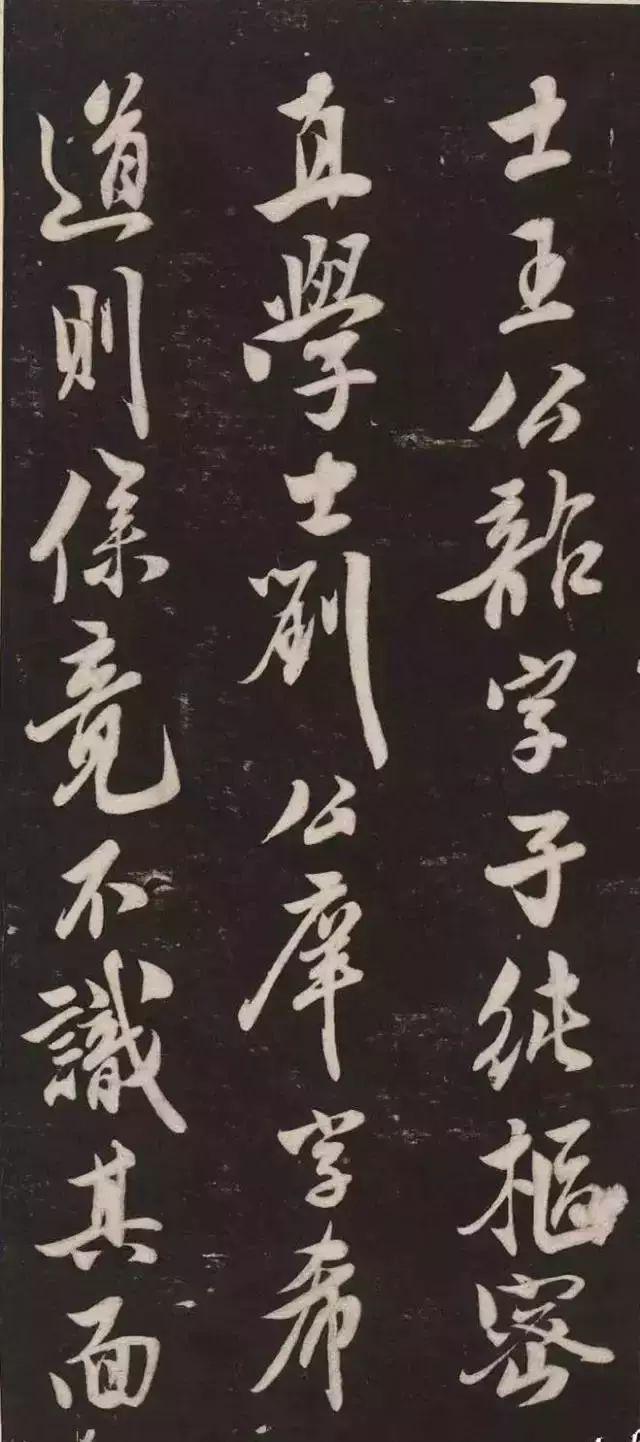 士王公韶字子純樞密
直學士劉公庠字希
道則係竟不識其面